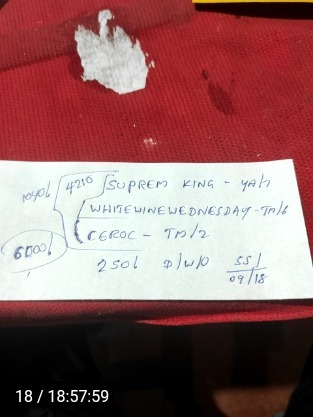 4210 SUPREM KING - YA/7
WHITEWINEWEDNESDAY - TM/6
CEROC - TM/2
6000/
250/ D/W/O SS/
09/18
18 / 18:57:59